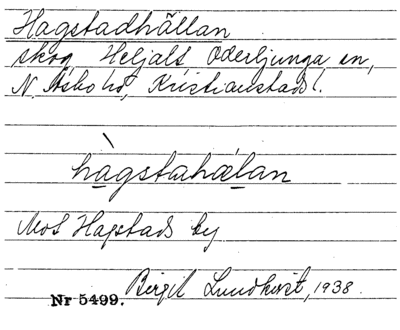 Hagstadhällan
skog, Heljalt, Oderljunga sn,
N. Åsbo hd, Kristianstads l.
hàgstahǽlan
Mot Hagstads by
Birgit Lundkvist, 1938.
Nr 5499.